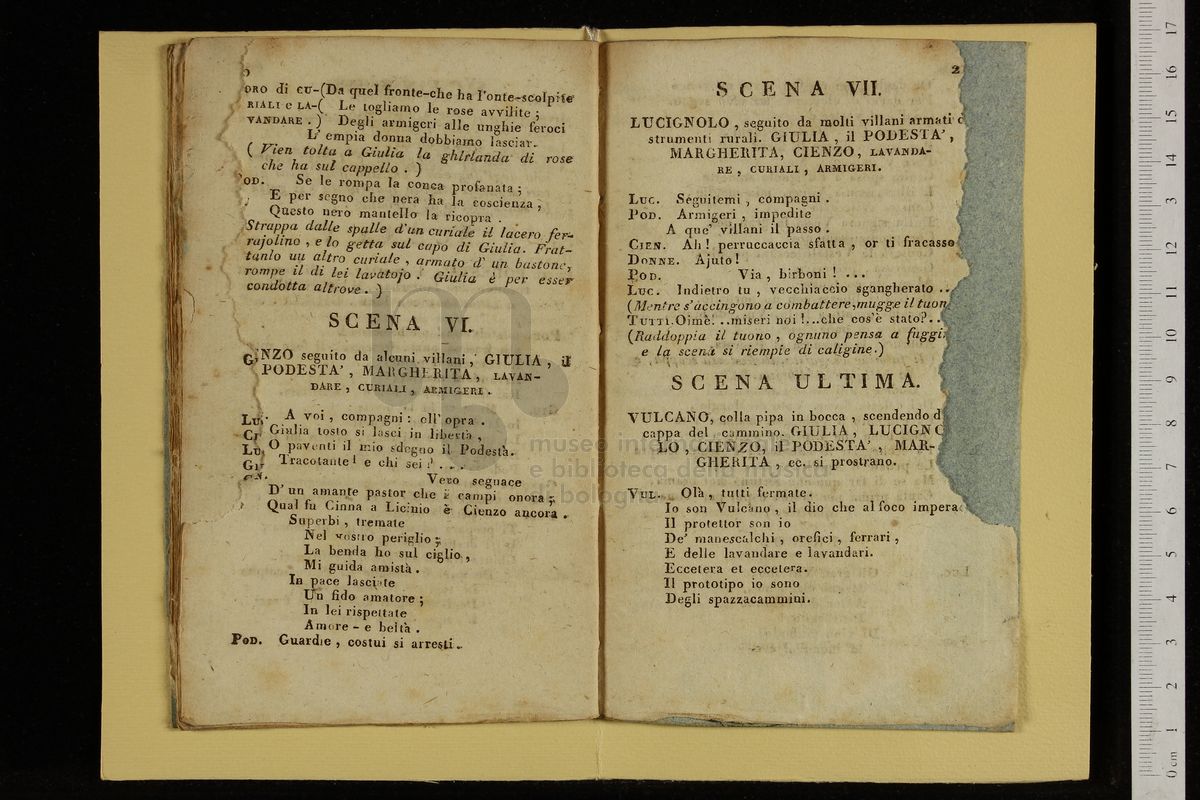 ORO di CU-(Da quel fronte-che ha l'onte-scolpite
RIALI e LA-( Le togliamo le rose avvilite ;
VANDARE . ) Degli armigeri alle unghie feroci
L' empia donna dobbiamo lasciar.
( Vien tolta a Giulia la ghirlanda di rose
che ha sul cappello . )
OD. Se le rompa la conca profanata ;
E per segno che nera ha la coscienza ,
Questo nero mantello la ricopra .
Strappa dalle spalle d'un curiale il lacero fer-
rajolino , e lo getta sul capo di Giulia. Frat-
tanto un altro curiale , armato d' un bastone,
rompe il di lei lavatojo . Giulia è per esser
condotta altrove . )
SCENA VI.
NZO seguito da alcuni villani , GIULIA , il
PODESTA' , MARGHERITA , LAVAN-
DARE , CURIALI , ARMIGERI .
A voi , compagni : all' opra .
Giulia tosto si lasci in libertà ,
O paventi il mio sdegno il Podestà.
Tracotante ! e chi sei ? . . .
Vero seguace
D' un amante pastor che i campi onora ;
Qual fu Cinna a Licinio è Cienzo ancora .
Superbi , tremate
Nel vostro periglio ;
La benda ho sul ciglio ,
Mi guida amistà .
In pace lasciate
Un fido amatore ;
In lei rispettate
Amore - e beltà .
POD. Guardie , costui si arresti .
2
SCENA VII.
LUCIGNOLO , seguito da molti villani armati d
strumenti rurali. GIULIA , il PODESTA' ,
MARGHERITA, CIENZO, LAVANDA-
RE , CURIALI , ARMIGERI.
LUC. Seguitemi , compagni .
POD. Armigeri , impedite
A que' villani il passo .
CIEN. Ah ! perruccaccia sfatta , or ti fracasso
DONNE. Ajuto !
POD. Via , birboni ! ...
LUC. Indietro tu , vecchiaccio sgangherato ..
(Mentre s'accingono a combattere,mugge il tuon
TUTTI.Oimè! ..miseri noi !...che cos'è stato?..
(Raddoppia il tuono , ognuno pensa a fuggir
e la scena si riempie di caligine.)
SCENA ULTIMA.
VULCANO, colla pipa in bocca , scendendo d
cappa del cammino. GIULIA, LUCIGNO
LO , CIENZO, il PODESTA' , MAR-
GHERITA , ec. si prostrano.
VUL. Olà , tutti fermate.
Io son Vulcano , il dio che al foco impera
Il protettor son io
De' manescalchi , orefici , ferrari ,
E delle lavandare e lavandari.
Eccetera et eccetera.
Il prototipo io sono
Degli spazzacammini.
museo internazionale
e biblioteca della musica
di bologna
0 cm 1 2 3 4 5 6 7 8 9 10 11 12 13 14 15 16 17